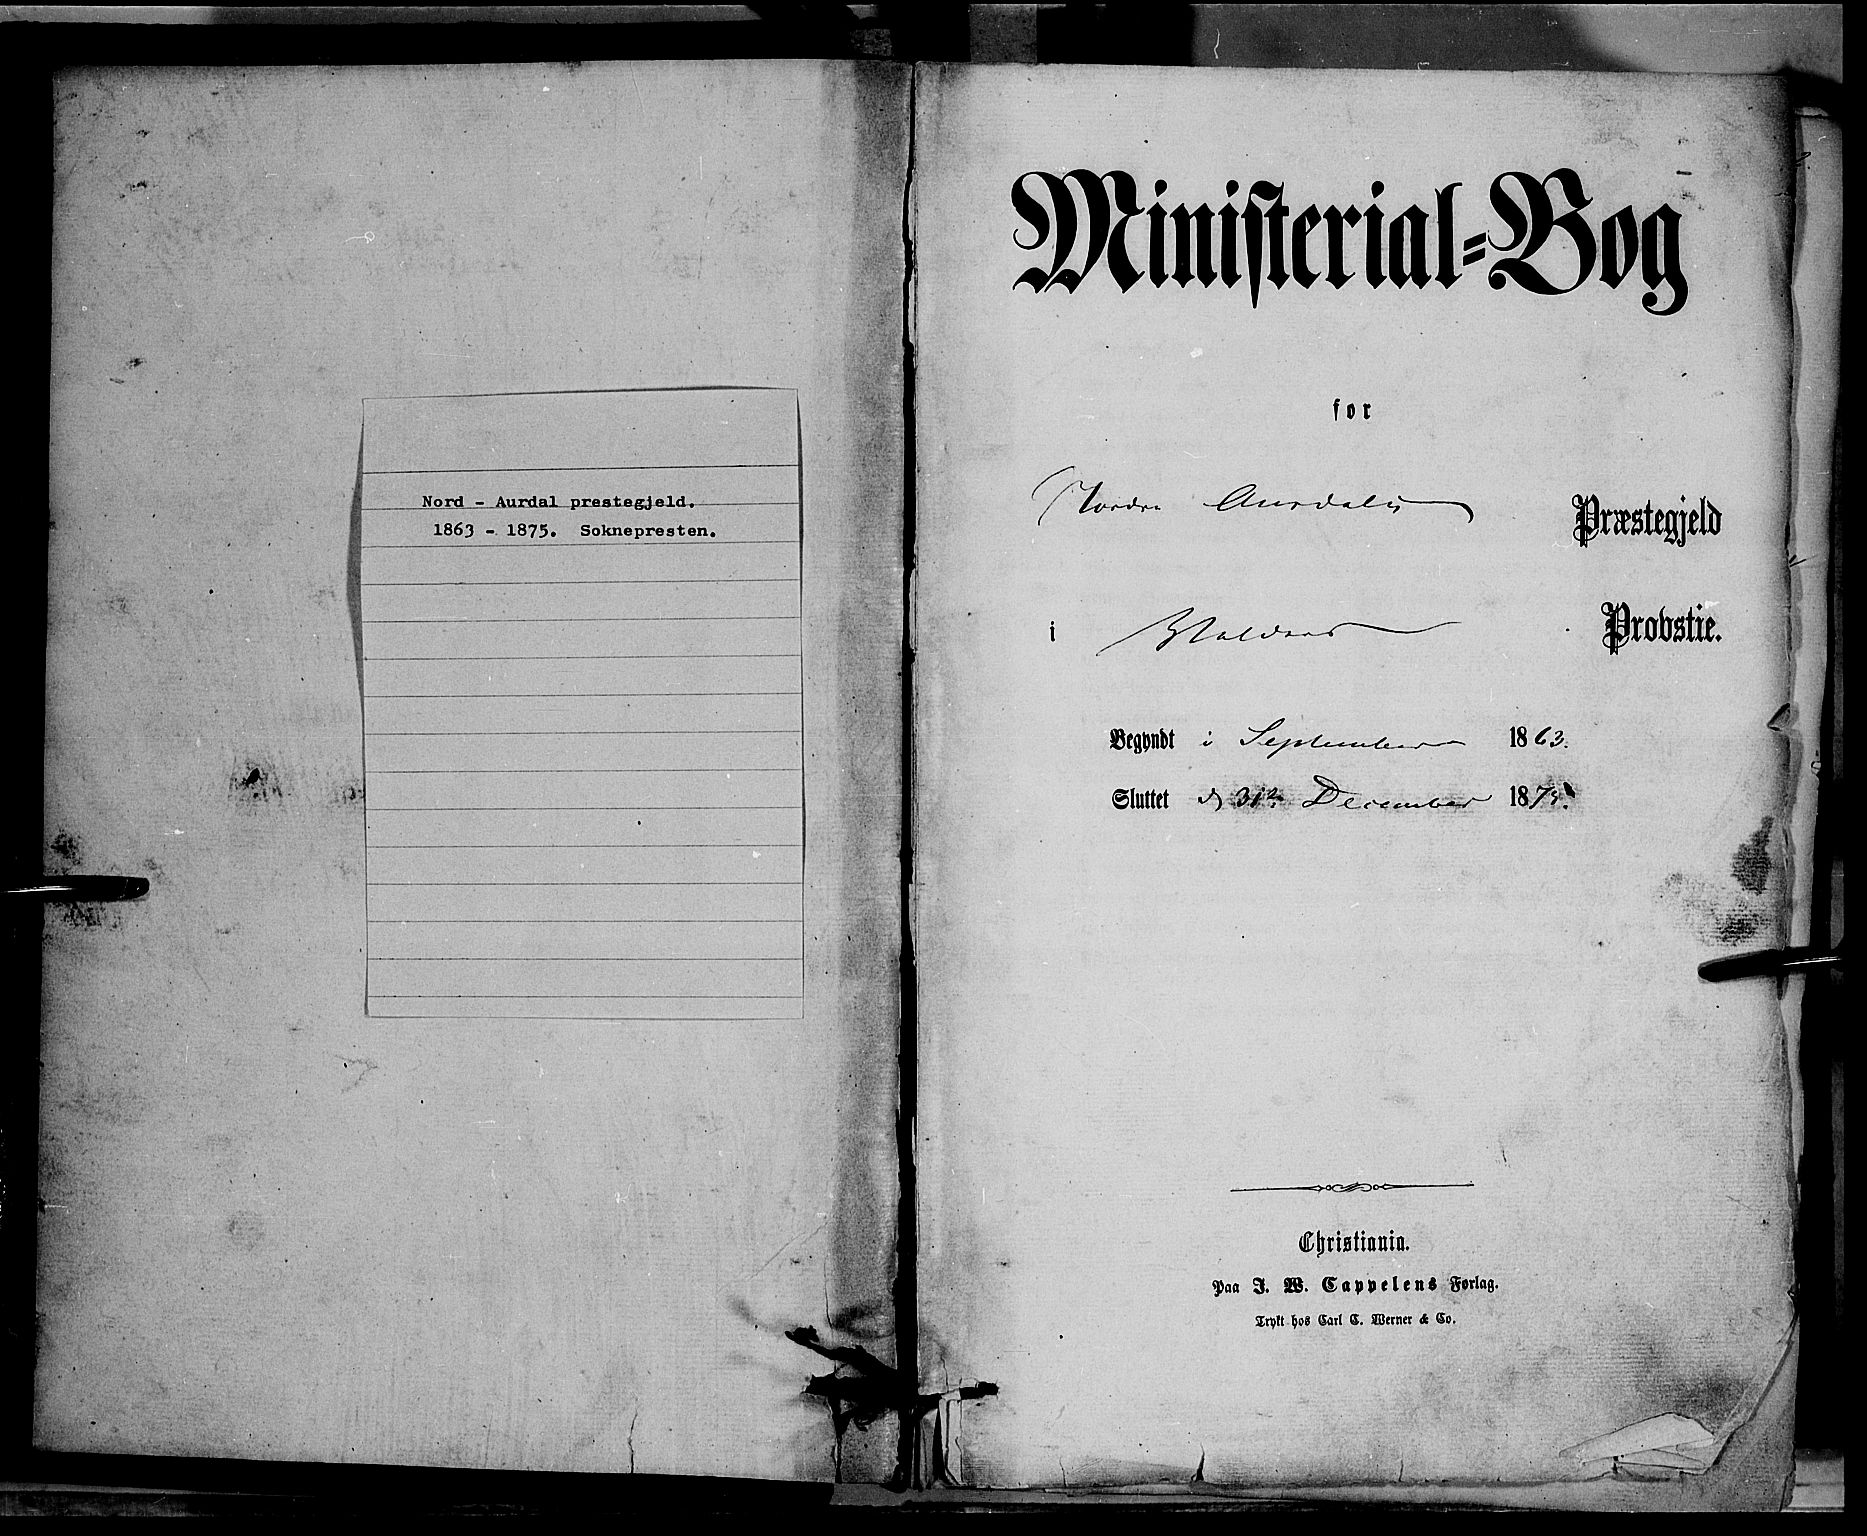 Nord - Aurdal prestegjeld.
1863 - 1875. Soknepresten.
Ministerial=Bog
for
Nordre Aurdals Præstegjeld
i Valders Provstie.
Begyndt i September 1863.
Sluttet d 31te December 1875.
Christiania.
Paa J. W. Cappelens Forlag.
Trykt hos Carl C. Werner & Co.